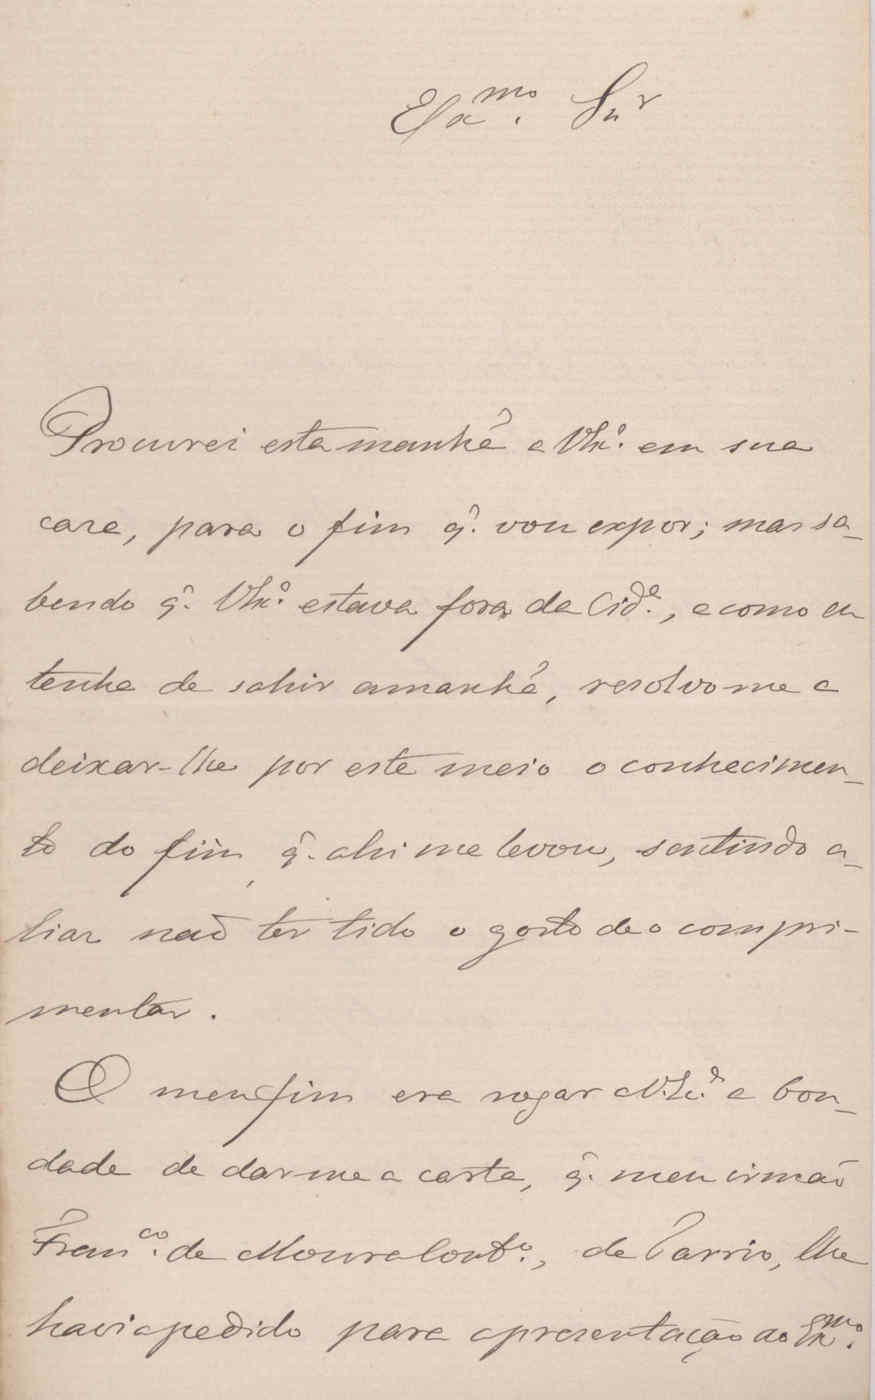 Exmo. Snr
Procurei esta manhã a VExª. em sua
casa, para o fim q̂. vou expor; mas sa-
bendo q̂. VExª. estava fora da Cidᵉ., e como eu
tenha de sahir amanhã, resolvo me a
deixar-lhe por este meio o conhecimen-
to do fim, q̂. ahi me levou, sentindo a-
liaz naõ ter tido o gosto de o compri-
mentar.
O meu fim era rogar a V.Exª. a bon-
dade de dar-me a carta, q̂. meu irmaõ
Franco. de Moura Coutº., de Parrio, lhe
havia pedido para apresentação ao Exmo.